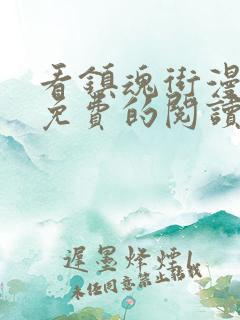 看鎮魂街漫
免費的閱讀
遲墨烽煙l
未经同意禁止转载